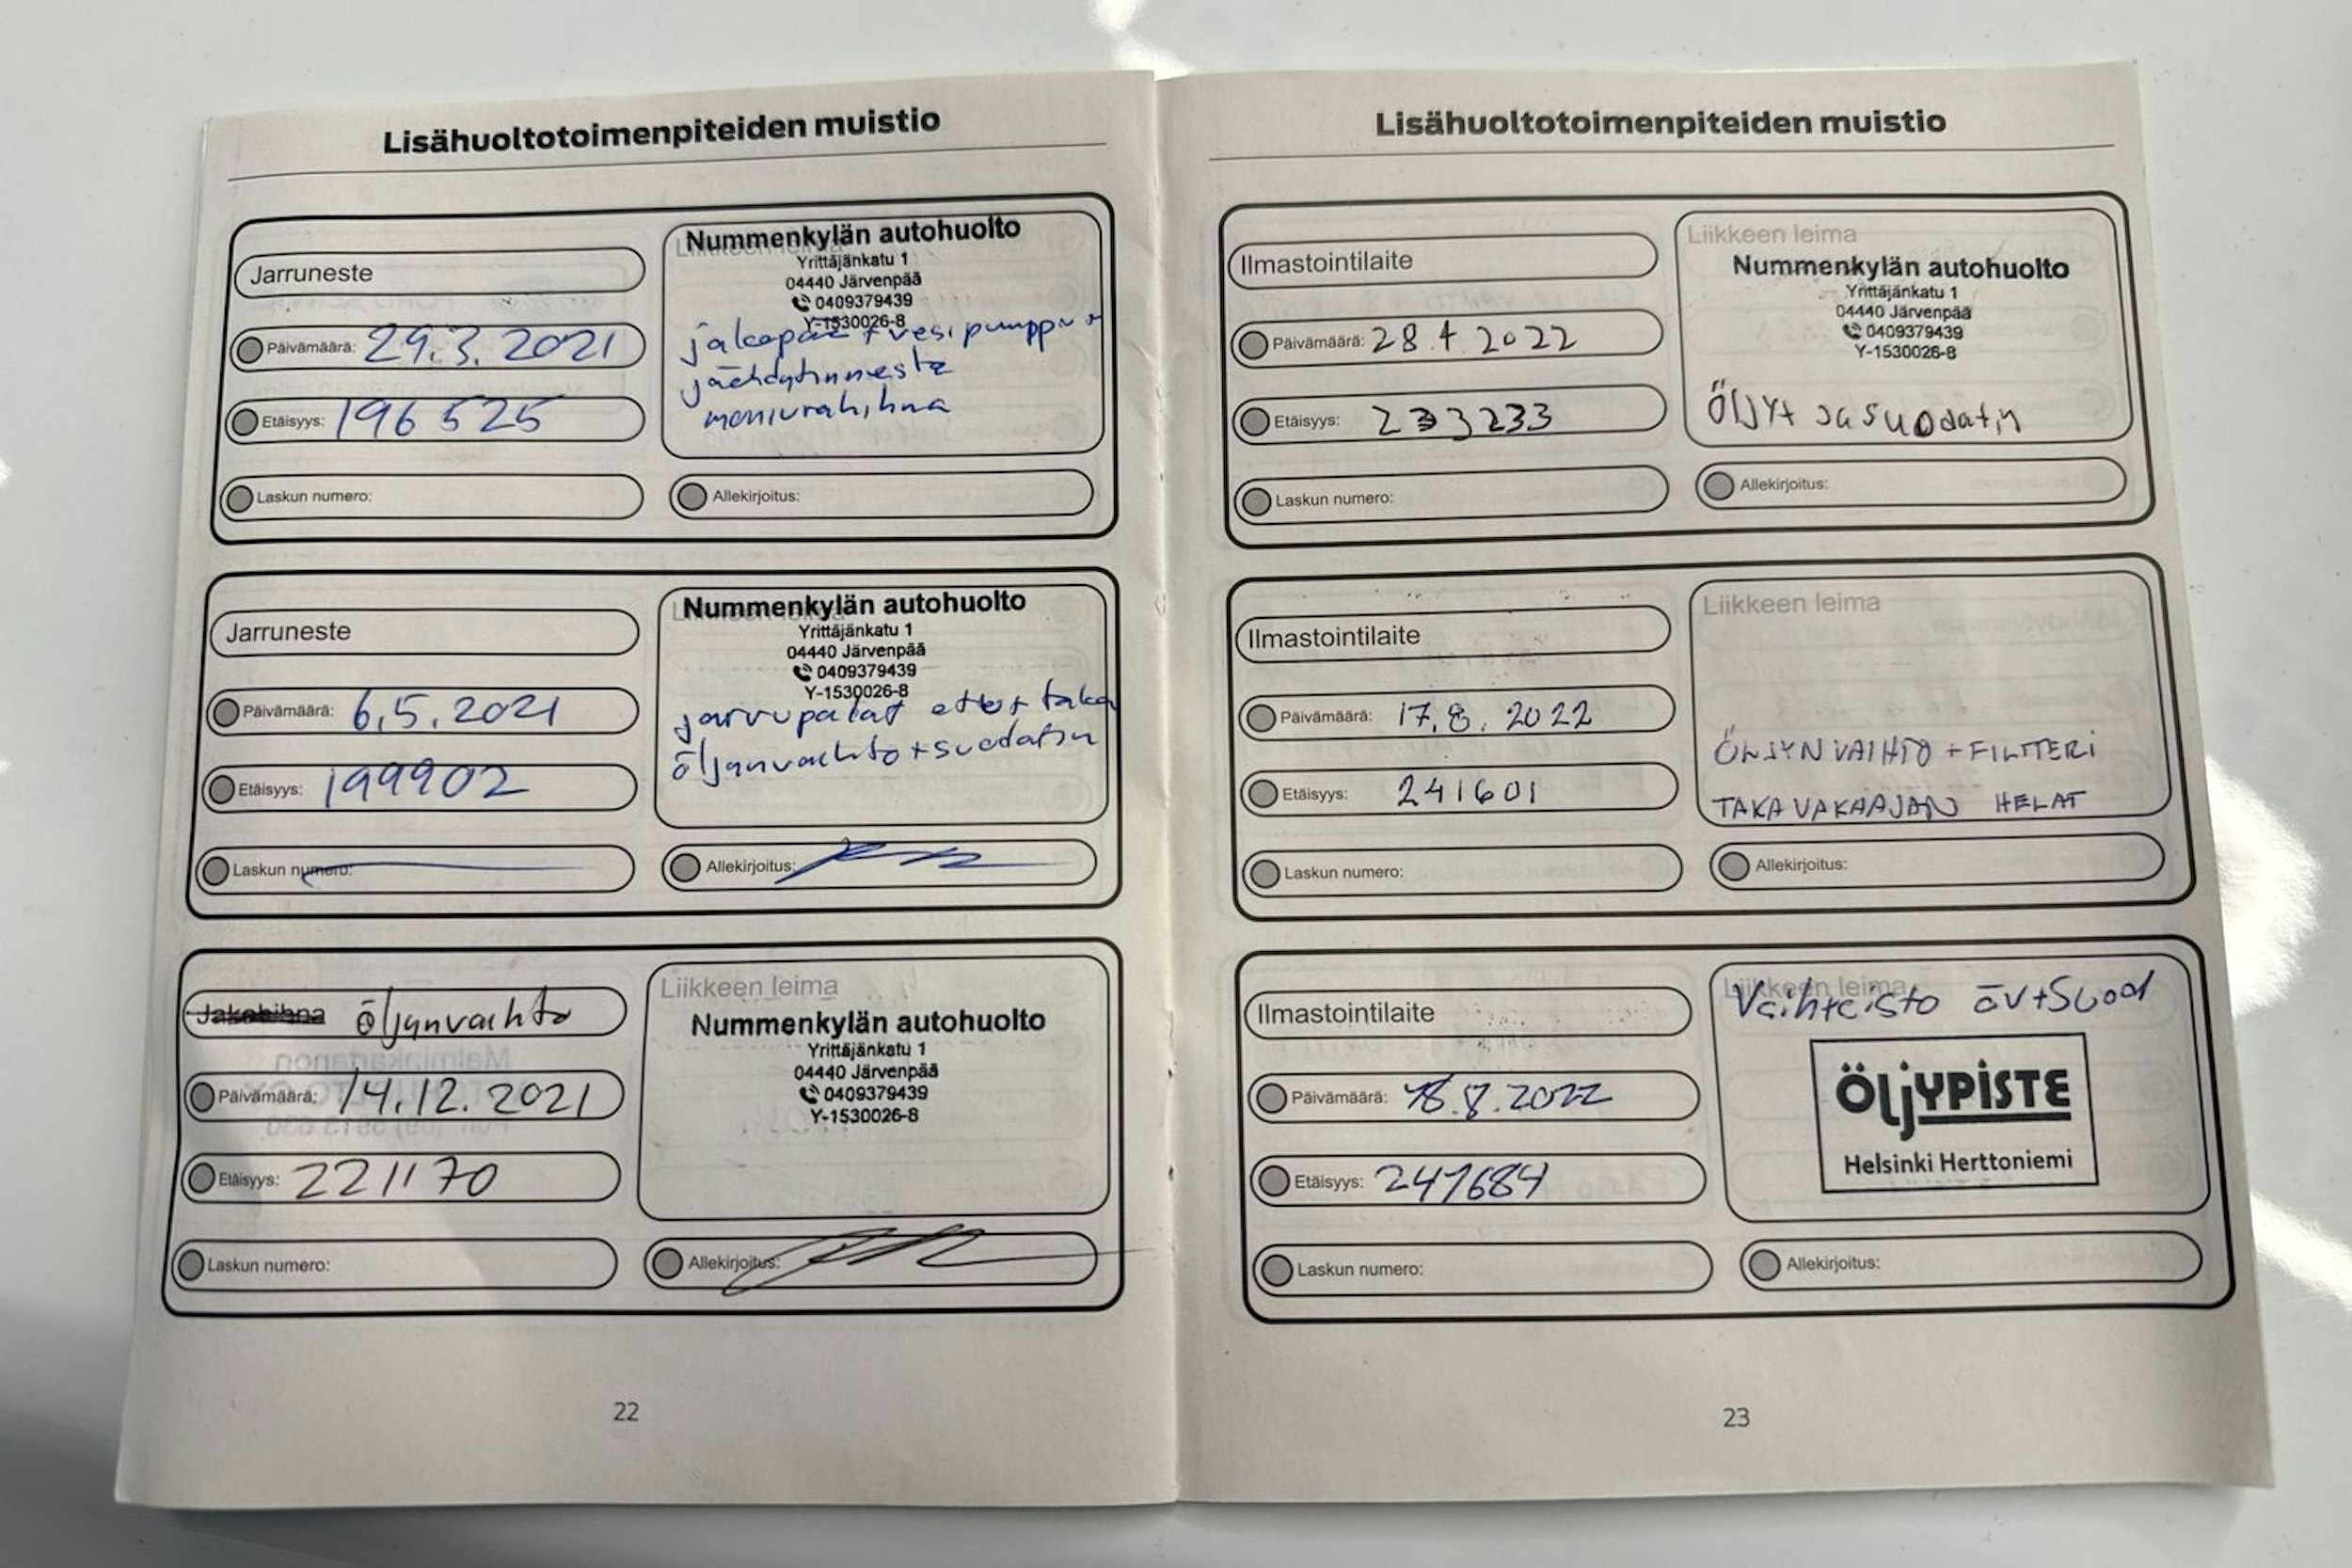 Lisähuoltotoimenpiteiden muistio
Jarruneste
Päivämäärä: 29.3.2021
Etäisyys: 196 525
Laskun numero:
Nummenkylän autohuolto
Yrittäjänkatu 1
04440 Järvenpää
0409379439
Y-1530026-8
jakopää + vesipumppu +
jäähdytinneste
moniurahihna
Allekirjoitus:
Jarruneste
Päivämäärä: 6.5.2021
Etäisyys: 199902
Laskun numero:
Nummenkylän autohuolto
Yrittäjänkatu 1
04440 Järvenpää
0409379439
Y-1530026-8
jarrupalat etu + taka
öljynvaihto + suodatin
Allekirjoitus:
Jakohihna öljynvaihto
Päivämäärä: 14.12.2021
Etäisyys: 221170
Laskun numero:
Liikkeen leima
Nummenkylän autohuolto
Yrittäjänkatu 1
04440 Järvenpää
0409379439
Y-1530026-8
Allekirjoitus:
22
Lisähuoltotoimenpiteiden muistio
Ilmastointilaite
Päivämäärä: 28.4.2022
Etäisyys: 233233
Laskun numero:
Liikkeen leima
Nummenkylän autohuolto
Yrittäjänkatu 1
04440 Järvenpää
0409379439
Y-1530026-8
Öljyt ja suodatin
Allekirjoitus:
Ilmastointilaite
Päivämäärä: 17.8.2022
Etäisyys: 241601
Laskun numero:
Liikkeen leima
ÖLJYN VAIHTO + FILTTERI
TAKAVAKAAJAN HELAT
Allekirjoitus:
Ilmastointilaite
Päivämäärä: 18.8.2022
Etäisyys: 241684
Laskun numero:
Liikkeen leima
Vaihteisto öv+Suod
ÖLJYPISTE
Helsinki Herttoniemi
Allekirjoitus:
23